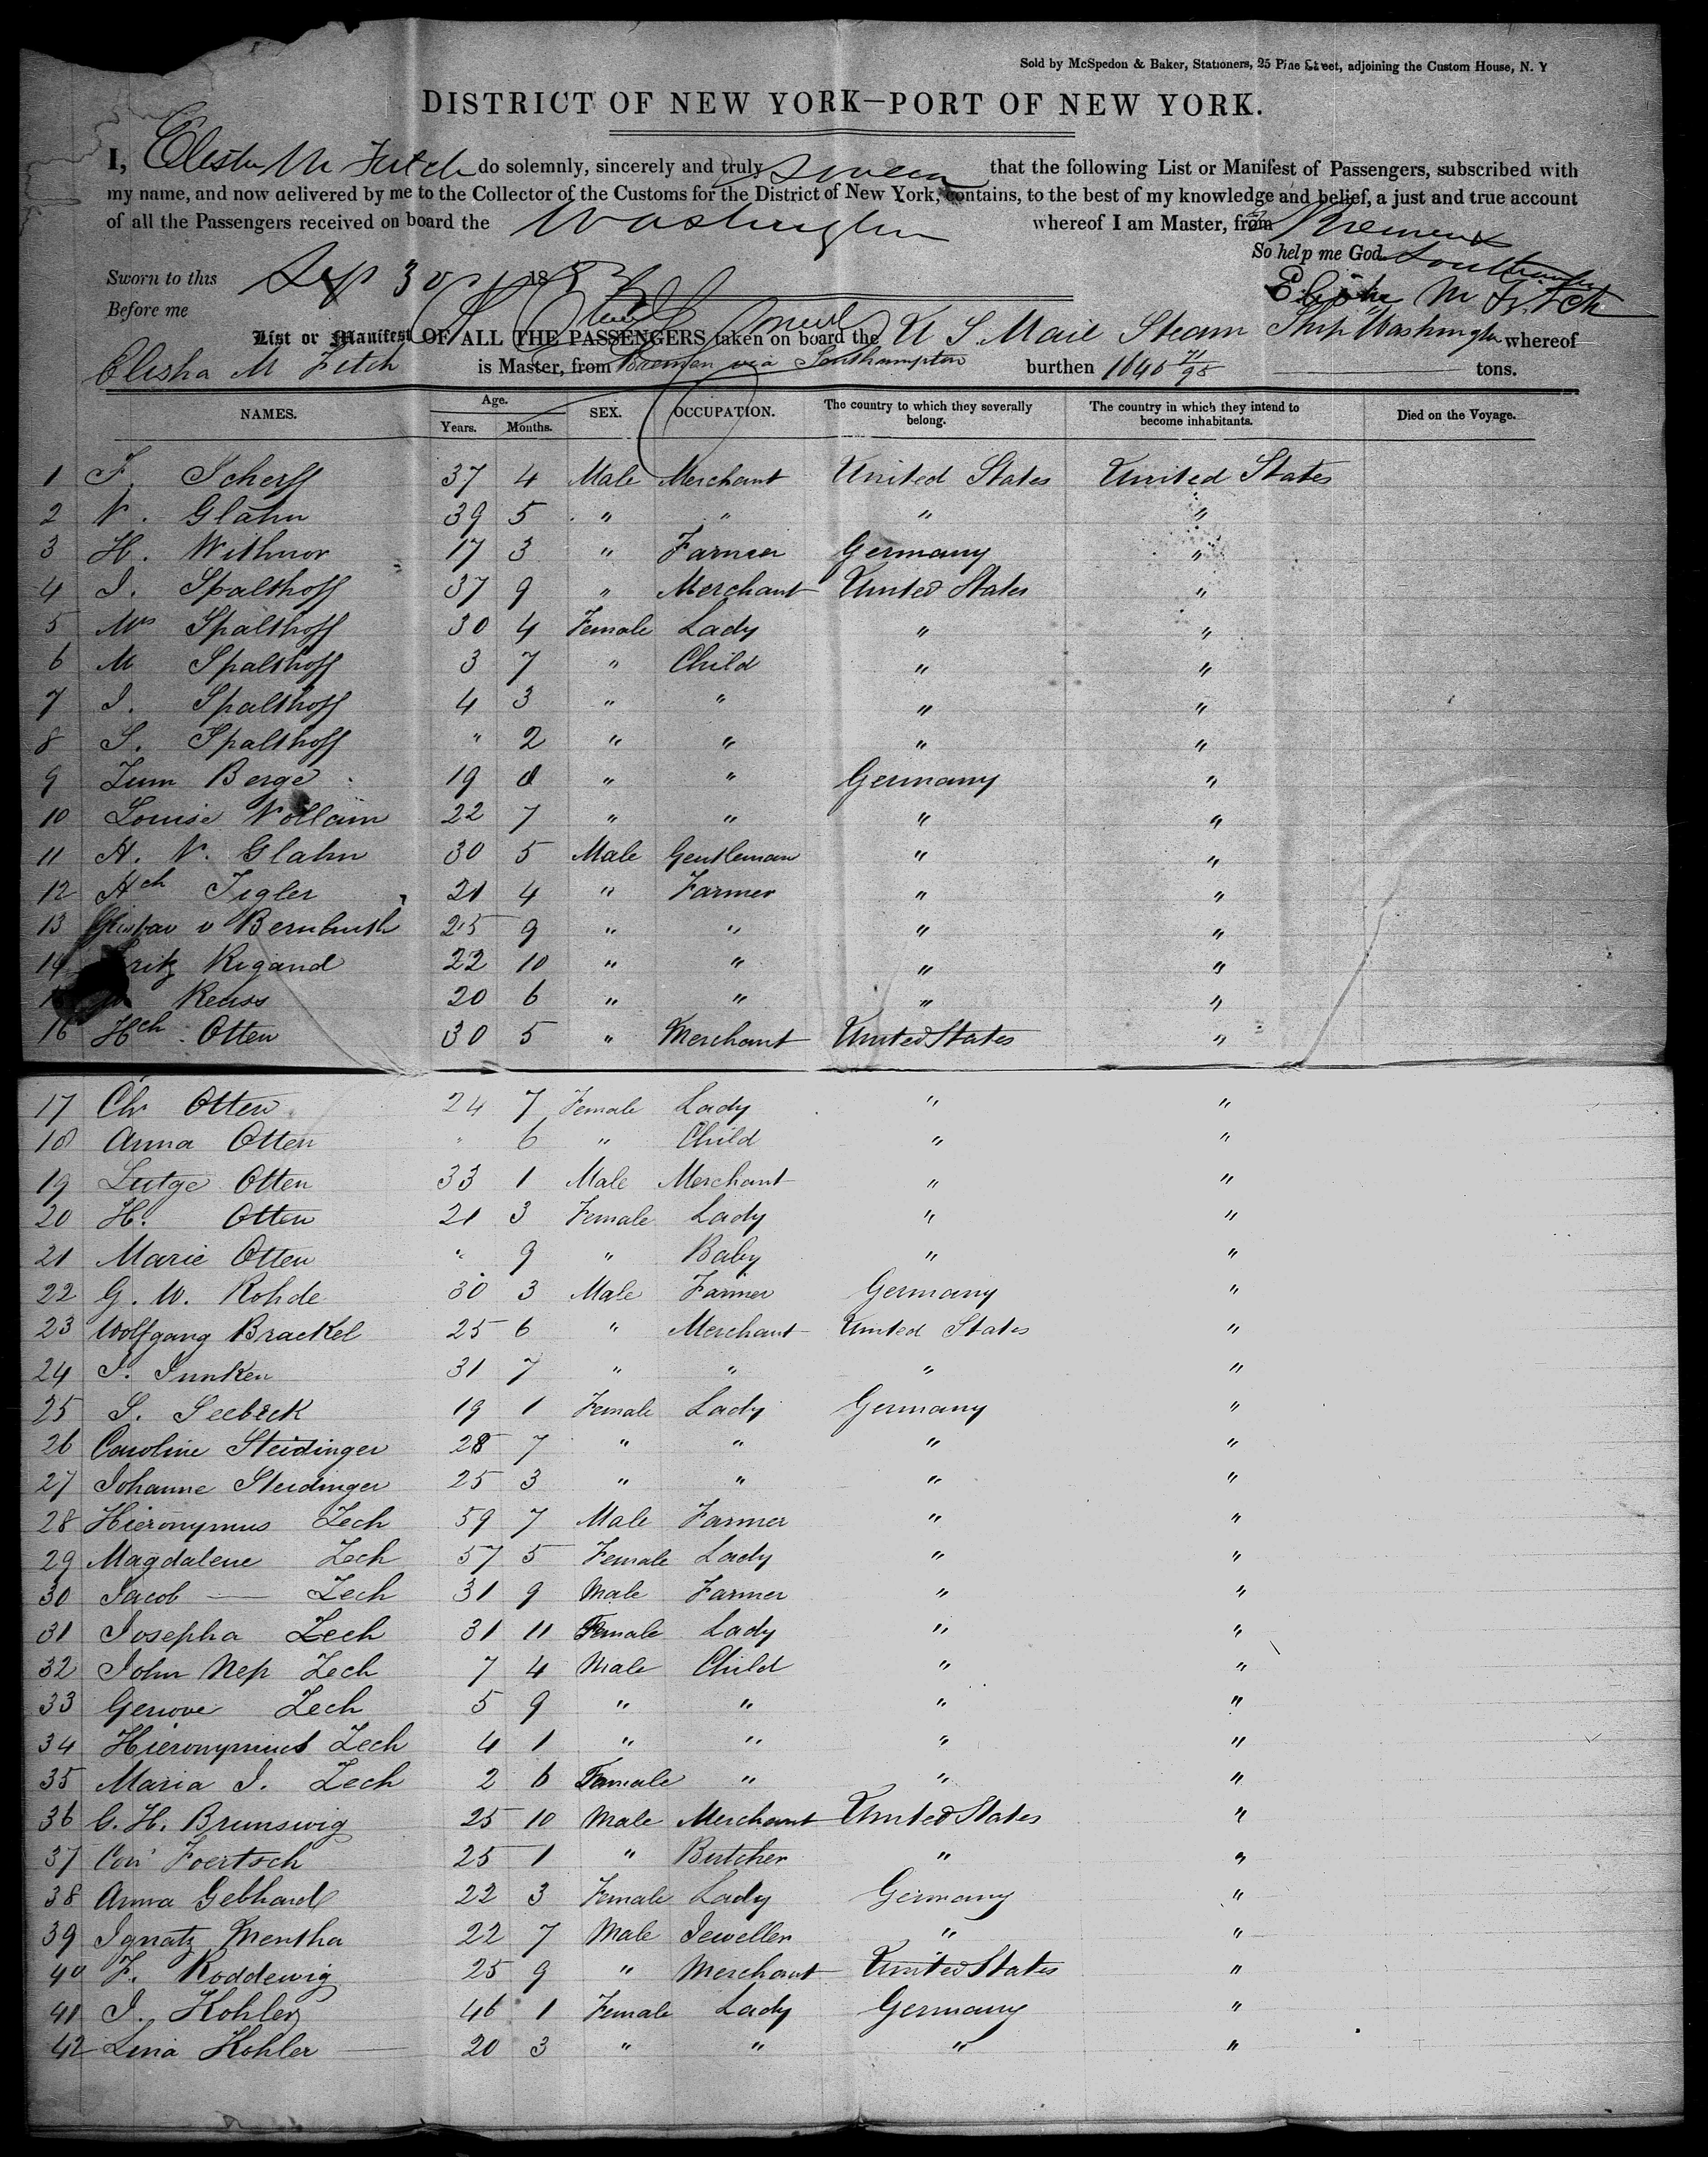 Sold by McSpedon & Baker, Stationers, 25 Pine Street, adjoining the Custom House, N. Y
DISTRICT OF NEW YORK—PORT OF NEW YORK.
I, Elisha M Fitch do solemnly, sincerely and truly swear that the following List or Manifest of Passengers, subscribed with
my name, and now delivered by me to the Collector of the Customs for the District of New York, contains, to the best of my knowledge and belief, a just and true account
of all the Passengers received on board the Washington whereof I am Master, from Bremen
So help me God. Southampton
Sworn to this Sep 30 1853
Elisha M Fitch
Before me
List or Manifest OF ALL THE PASSENGERS taken on board the U S. Mail Steam Ship Washington whereof
Elisha M Fitch is Master, from Bremen via Southampton burthen 1640 71/95 tons.
NAMES. Age. Years. Months. SEX. OCCUPATION. The country to which they severally belong. The country in which they intend to become inhabitants. Died on the Voyage.
1 F. Scherff 37 4 Male Merchant United States United States
2 V. Glahn 39 5 " " " "
3 H. Withnor 17 3 " Farmer Germany "
4 I. Spalthoff 37 9 " Merchant United States "
5 Mrs Spalthoff 30 4 Female Lady " "
6 M Spalthoff 3 7 " Child " "
7 I. Spalthoff 4 3 " " " "
8 S. Spalthoff " 2 " " " "
9 Zum Berge 19 " " Germany "
10 Louise 22 7 " " " "
11 H. V. Glahn 30 5 Male Gentleman " "
12 Hch Tigler 21 4 " Farmer " "
13 Gustav v 25 9 " " " "
14 Fritz Rigand 22 10 " " " "
Reuss 20 6 " " " "
16 Hch Otten 30 5 " Merchant United States "
17 Chr Otten 24 7 Female Lady " "
18 Anna Otten " 6 " Child " "
19 Lutge Otten 33 1 Male Merchant " "
20 H. Otten 21 3 Female Lady " "
21 Marie Otten " 9 " Baby " "
22 G. W. Rohde 30 3 Male Farmer Germany "
23 Wolfgang Brackel 25 6 " Merchant United States "
24 I. Iunken 31 7 " " " "
25 S. Seebeck 19 1 Female Lady Germany "
26 Caroline Steidinger 28 7 " " " "
27 Iohanne Steidinger 25 3 " " " "
28 Hieronymus Zech 59 7 Male Farmer " "
29 Magdalene Zech 57 5 Female Lady " "
30 Jacob — Zech 31 9 Male Farmer " "
31 Josepha Zech 31 11 Female Lady " "
32 John Nep Zech 7 4 Male Child " "
33 Genove Zech 5 9 " " " "
34 Hieronymus Zech 4 1 " " " "
35 Maria I. Zech 2 6 Female " " "
36 C. H. Brunswig 25 10 Male Merchant United States "
37 Con Foertsch 25 1 " Butcher " "
38 Anna Gebhard 22 3 Female Lady Germany "
39 Ignatz Mentha 22 7 Male Jeweller " "
40 F. Roddewig 25 9 " Merchant United States "
41 I. Kohler 46 1 Female Lady Germany "
42 Lina Kohler 20 3 " " " "